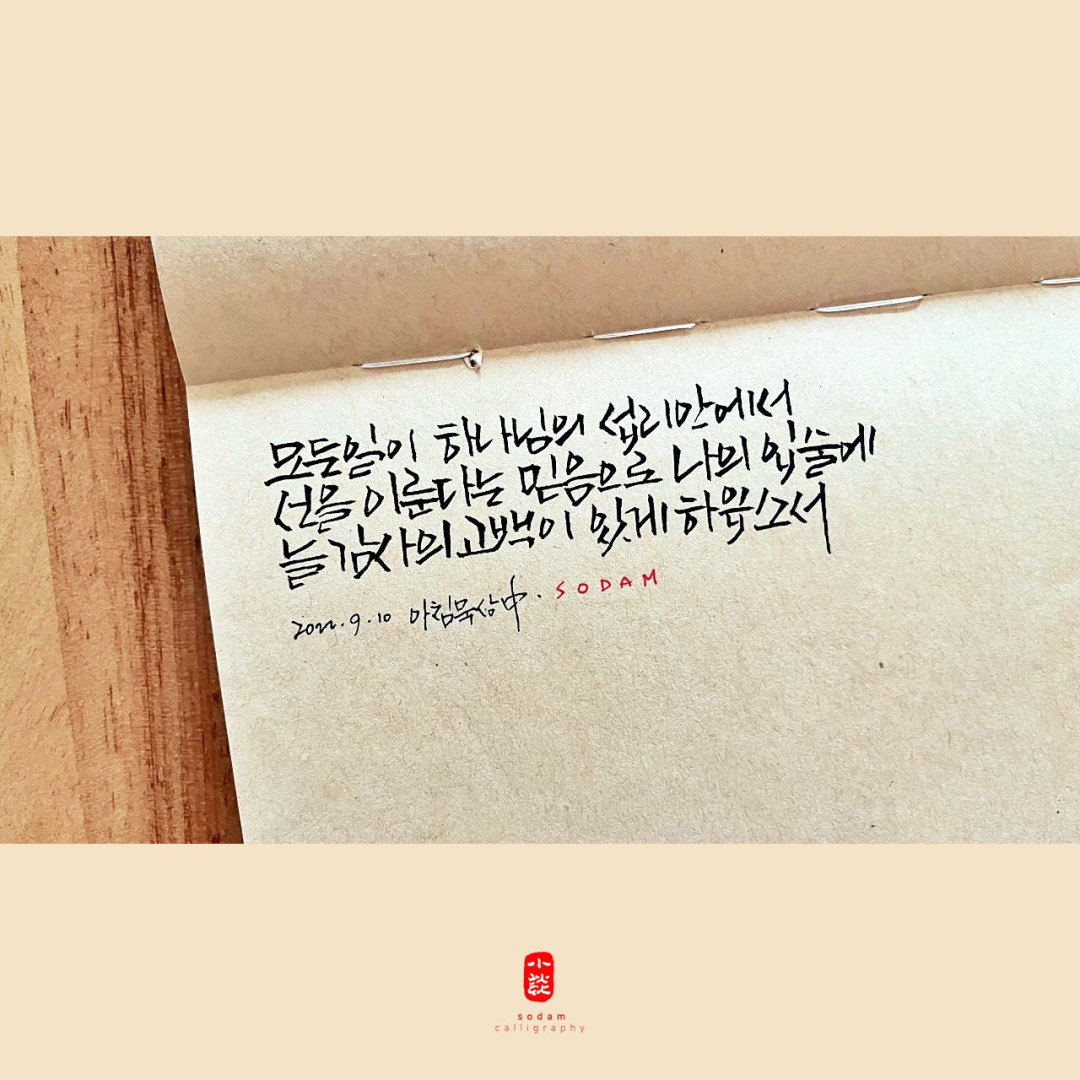 모든일이 하나님의 섭리안에서
선을 이룬다는 믿음으로 나의 입술에
늘 감사의 고백이 있게 하옵소서
2022.9.10 아침묵상中. SODAM
小談
sodam
calligraphy